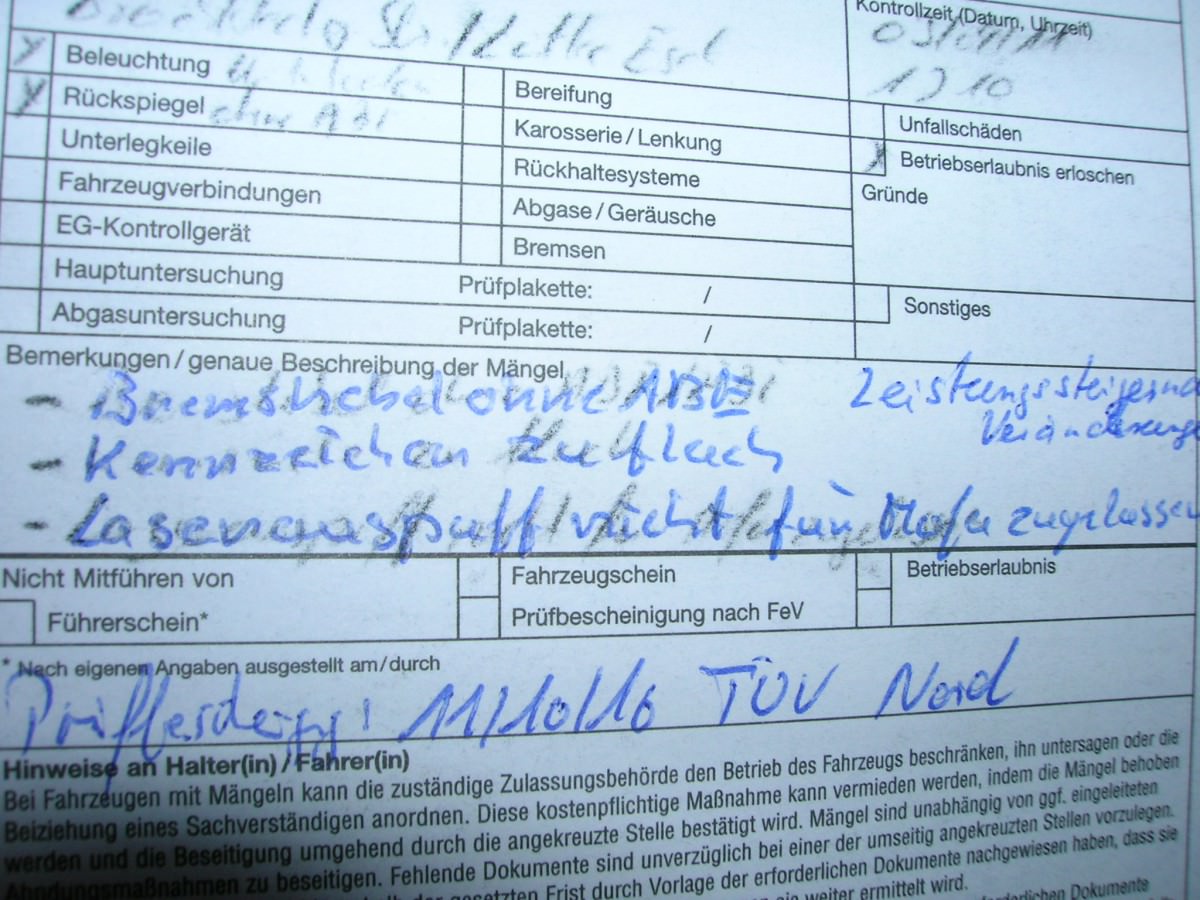 Kontrollzeit (Datum, Uhrzeit)
Str.
x Beleuchtung
x Rückspiegel ohne
Unterlegkeile
Fahrzeugverbindungen
EG-Kontrollgerät
Hauptuntersuchung Prüfplakette: /
Abgasuntersuchung Prüfplakette: /
Bereifung
Karosserie/Lenkung
Rückhaltesysteme
Abgase/Geräusche
Bremsen
Unfallschäden
x Betriebserlaubnis erloschen
Gründe
Sonstiges
Bemerkungen/genaue Beschreibung der Mängel
- Bremshebel ohne ABE
Leistungssteigernde
Veränderungen
- Kennzeichen zu flach
- Laserauspuff nicht für Mofa zugelassen
Nicht Mitführen von
Führerschein*
Fahrzeugschein
Prüfbescheinigung nach FeV
Betriebserlaubnis
* Nach eigenen Angaben ausgestellt am/durch
11/10/16 TÜV Nord
Hinweise an Halter(in)/Fahrer(in)
Bei Fahrzeugen mit Mängeln kann die zuständige Zulassungsbehörde den Betrieb des Fahrzeugs beschränken, ihn untersagen oder die
Beiziehung eines Sachverständigen anordnen. Diese kostenpflichtige Maßnahme kann vermieden werden, indem die Mängel behoben
werden und die Beseitigung umgehend durch die angekreuzte Stelle bestätigt wird. Mängel sind unabhängig von ggf. eingeleiteten
Ahndungsmaßnahmen zu beseitigen. Fehlende Dokumente sind unverzüglich bei einer der umseitig angekreuzten Stellen vorzulegen.
gesetzten Frist durch Vorlage der erforderlichen Dokumente nachgewiesen haben, dass sie
weiter ermittelt wird.
Dokumente